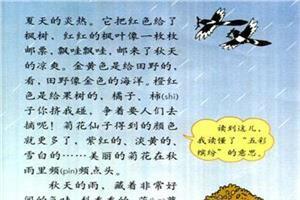 夏天的炎热。它把红色给了
枫树，红红的枫叶像一枚枚
邮票，飘哇飘哇，邮来了秋天
的凉爽。金黄色是给田野的，
看，田野像金色的海洋。橙红
色是给果树的，橘子、柿(shì)
子你挤我碰，争着要人们去
摘呢！菊花仙子得到的颜色
就更多了，紫红的、淡黄的、
雪白的……美丽的菊花在秋
雨里频(pín)频点头。
秋天的雨，藏着非常好
读到这儿，
我读懂了“五彩
缤纷”的意思。